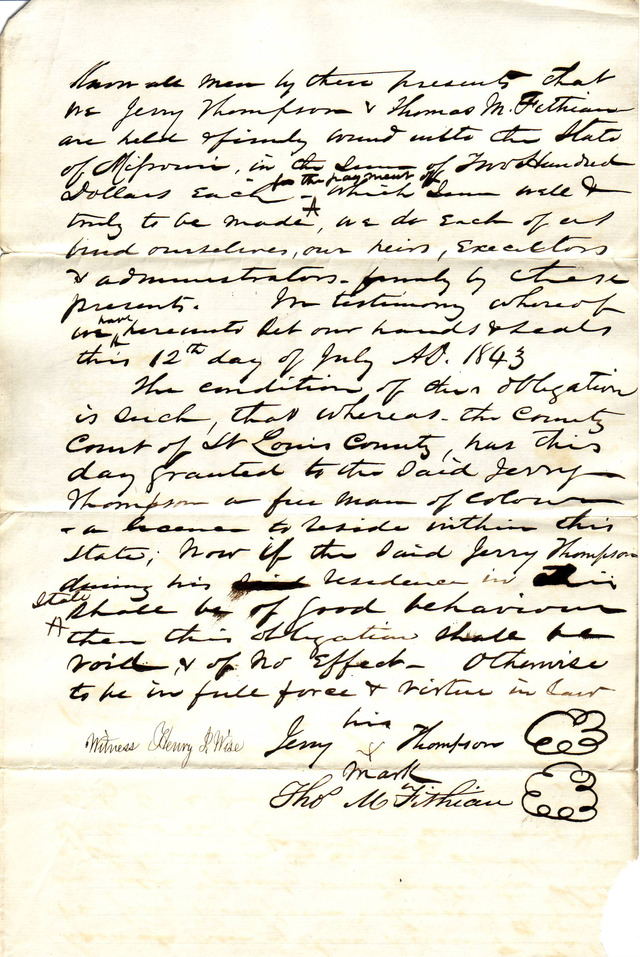 Know all men by these presents that
we Jerry Thompson & Thomas M. Fithian
are held & firmly bound unto the State
of Missouri, in the Sum of Two Hundred
Dollars Each - for the payment of which Sum well &
truly to be made, we do Each of us
bind ourselves, our heirs, Executors
& administrators - firmly by these
presents. In testimony whereof
we have hereunto Set our hands & Seals
this 12th day of July AD. 1843
The condition of this obligation
is Such, that whereas - the County
Court of St Louis County, has this
day granted to the Said Jerry
Thompson a free man of Colour
- a licence to reside within this
State; Now if the Said Jerry Thompson
during his residence in this
State Shall be of good behaviour
then this obligation Shall be
void, & of no Effect - Otherwise
to be in full force & virtue in law
Witness Henry Wise Jerry his Thompson
mark
Thos M Fithian